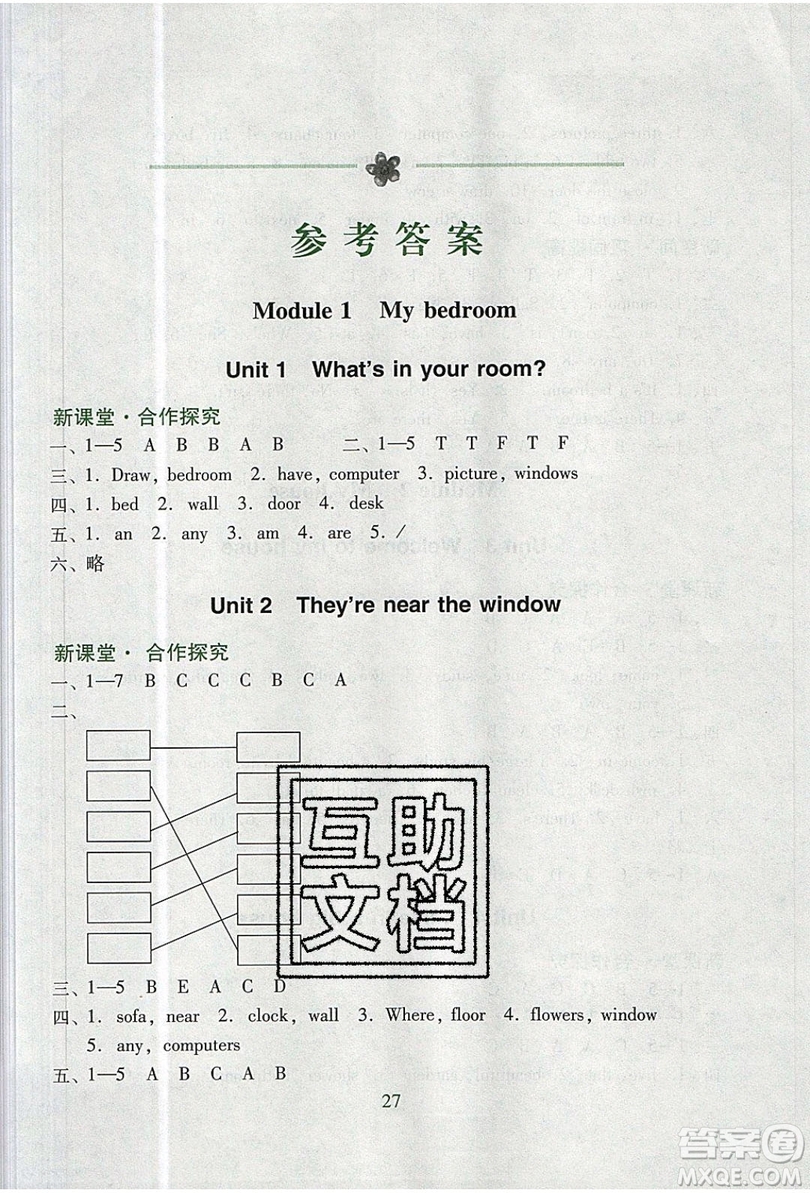 参考答案
Module 1 My bedroom
Unit 1 What's in your room?
新课堂·合作探究
一、1—5 A B B A B 二、1—5 T T F T F
三、1. Draw, bedroom 2. have, computer 3. picture, windows
四、1. bed 2. wall 3. door 4. desk
五、1. an 2. any 3. am 4. are 5. /
六、略
Unit 2 They're near the window
新课堂·合作探究
一、1—7 B C C C B C A
二、
互助
文档
三、1—5 B E A C D
四、1. sofa, near 2. clock, wall 3. Where, floor 4. flowers, window
5. any, computers
五、1—5 A B C A B
27
答案圈
MXQE.COM